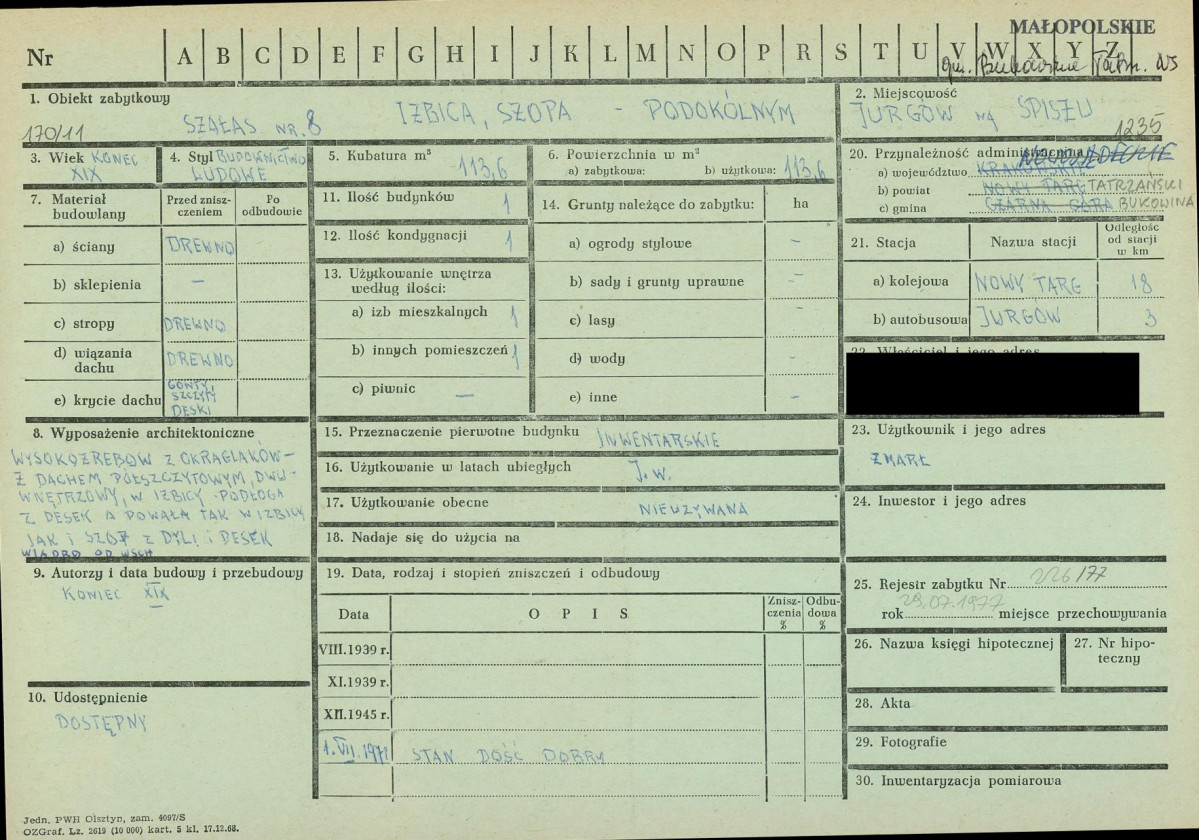 MAŁOPOLSKIE
Nr A B C D E F G H I J K L M N O P R S T U V W X Y Z
gm. Bukowina Tatrz.
1. Obiekt zabytkowy
170/11
SZAŁAS NR. 8 IZBICA, SZOPA - PODOKÓLNYM
2. Miejscowość
JURGÓW NA SPISZU
1235
3. Wiek KONIEC
XIX
4. Styl BUDOWNICTWO
LUDOWE
5. Kubatura m³
113,6
6. Powierzchnia w m²
a) zabytkowa: b) użytkowa: 113,6
20. Przynależność administracyjna NOWOSĄDECKIE
a) województwo KRAKOWSKIE
b) powiat NOWY TARG TATRZAŃSKI
c) gmina CZARNA GÓRA BUKOWINA
7. Materiał
budowlany
Przed znisz-
czeniem
Po
odbudowie
a) ściany DREWNO
b) sklepienia –
c) stropy DREWNO
d) wiązania
dachu DREWNO
e) krycie dachu GONTY,
SZCZYTY
DESKI
11. Ilość budynków 1
12. Ilość kondygnacji 1
13. Użytkowanie wnętrza
według ilości:
a) izb mieszkalnych 1
b) innych pomieszczeń 1
c) piwnic —
14. Grunty należące do zabytku: ha
a) ogrody stylowe –
b) sady i grunty uprawne –
c) lasy –
d) wody –
e) inne –
21. Stacja Nazwa stacji Odległość
od stacji
w km
a) kolejowa NOWY TARG 18
b) autobusowa JURGÓW 3
22. Właściciel i jego adres
8. Wyposażenie architektoniczne
WYSOKOZRĘBOW Z OKRĄGLAKÓW –
Z DACHEM PÓŁSZCZYTOWYM, DWU-
WNĘTRZOWY, W IZBICY - PODŁOGA
Z DESEK A POWAŁA TAK W IZBICY
JAK I SZOP Z DYLI I DESEK
OD WSCH
15. Przeznaczenie pierwotne budynku INWENTARSKIE
16. Użytkowanie w latach ubiegłych J.W.
17. Użytkowanie obecne NIEUŻYWANA
18. Nadaje się do użycia na
23. Użytkownik i jego adres
ZMARŁ
24. Inwestor i jego adres
9. Autorzy i data budowy i przebudowy
KONIEC XIX
19. Data, rodzaj i stopień zniszczeń i odbudowy
Data O P I S Znisz-
czenia
% Odbu-
dowa
%
VIII.1939 r.
XI.1939 r.
XII.1945 r.
1.VII.1971 STAN DOŚĆ DOBRY
25. Rejestr zabytku Nr 226/77
rok 29.07.1977 miejsce przechowywania
26. Nazwa księgi hipotecznej
27. Nr hipo-
teczny
10. Udostępnienie
DOSTĘPNY
28. Akta
29. Fotografie
30. Inwentaryzacja pomiarowa
Jedn. PWH Olsztyn, zam. 4097/S
OZGraf. Lz. 2619 (10 000) kart. 5 kl. 17.12.68.